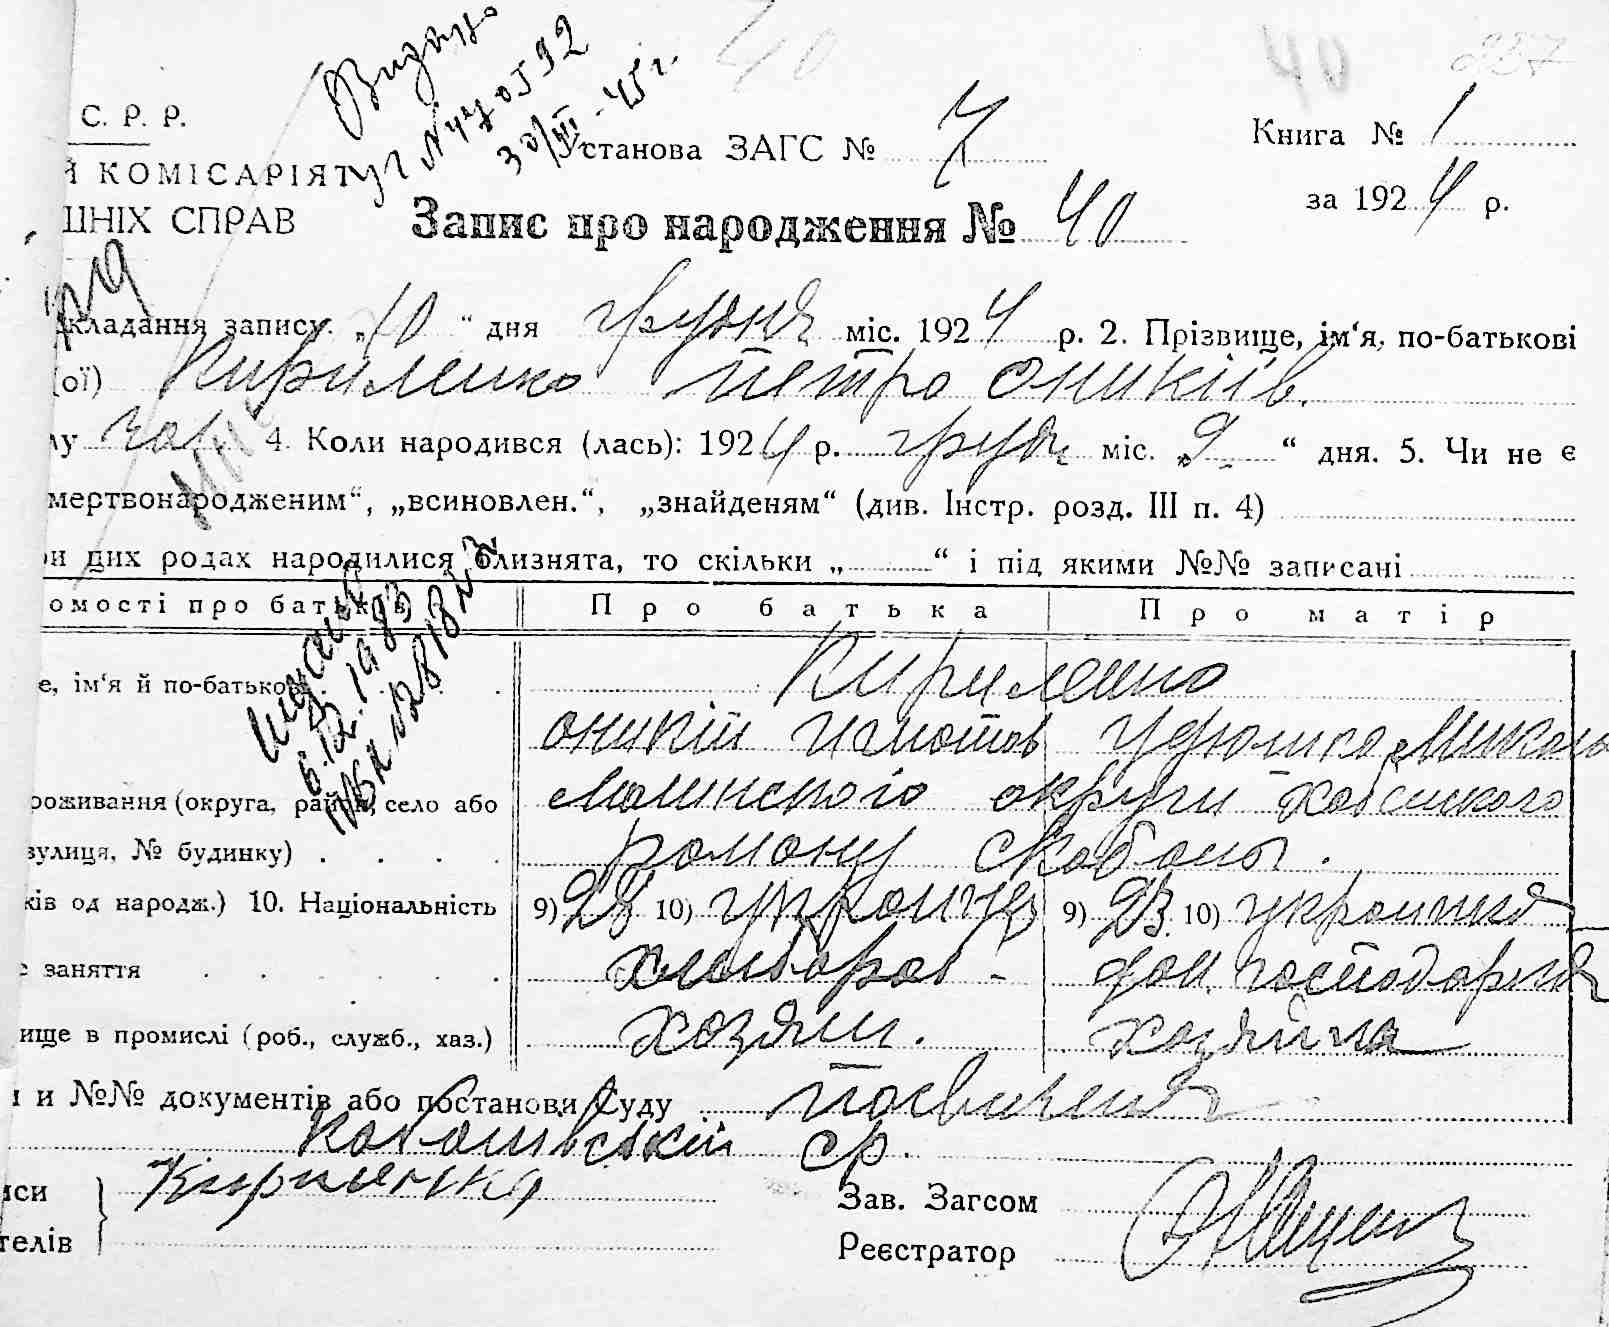 Видано
40
40
С. Р. Р.
30/III-45 г.
Установа ЗАГС № 7
Книга № 1
Й КОМІСАРІЯТ
за 1924 р.
ШНІХ СПРАВ
Запис про народження № 40
кладання запису. „10“ дня грудня міс. 1924 р. 2. Прізвище, ім‘я, по-батькові
(ої) Кириленко Петро Оникіїв.
лу чол. 4. Коли народився (лась): 1924 р. грудн міс. „9“ дня. 5. Чи не є
мертвонародженим“, „всиновлен.“, „знайденям“ (див. Інстр. розд. III п. 4)
ри цих родах народилися близнята, то скільки „ “ і під якими №№ записані
омості про батьків
Про батька
Про матір
е, ім‘я й по-батькові
Кириленко
Оникій
6.12.1983
роживання (округа, район, село або
округи
вулиця, № будинку)
району
ків од народж.) 10. Національність
9) 28 10) українец
9) 23 10) украинка
є заняття
хлібороб
дом. господарка
ище в промислі (роб., служб., хаз.)
хозяин.
хозяйка
и №№ документів або постанови Суду посвичення
ср.
иси
телів
Кириленко
Зав. Загсом
Реєстратор